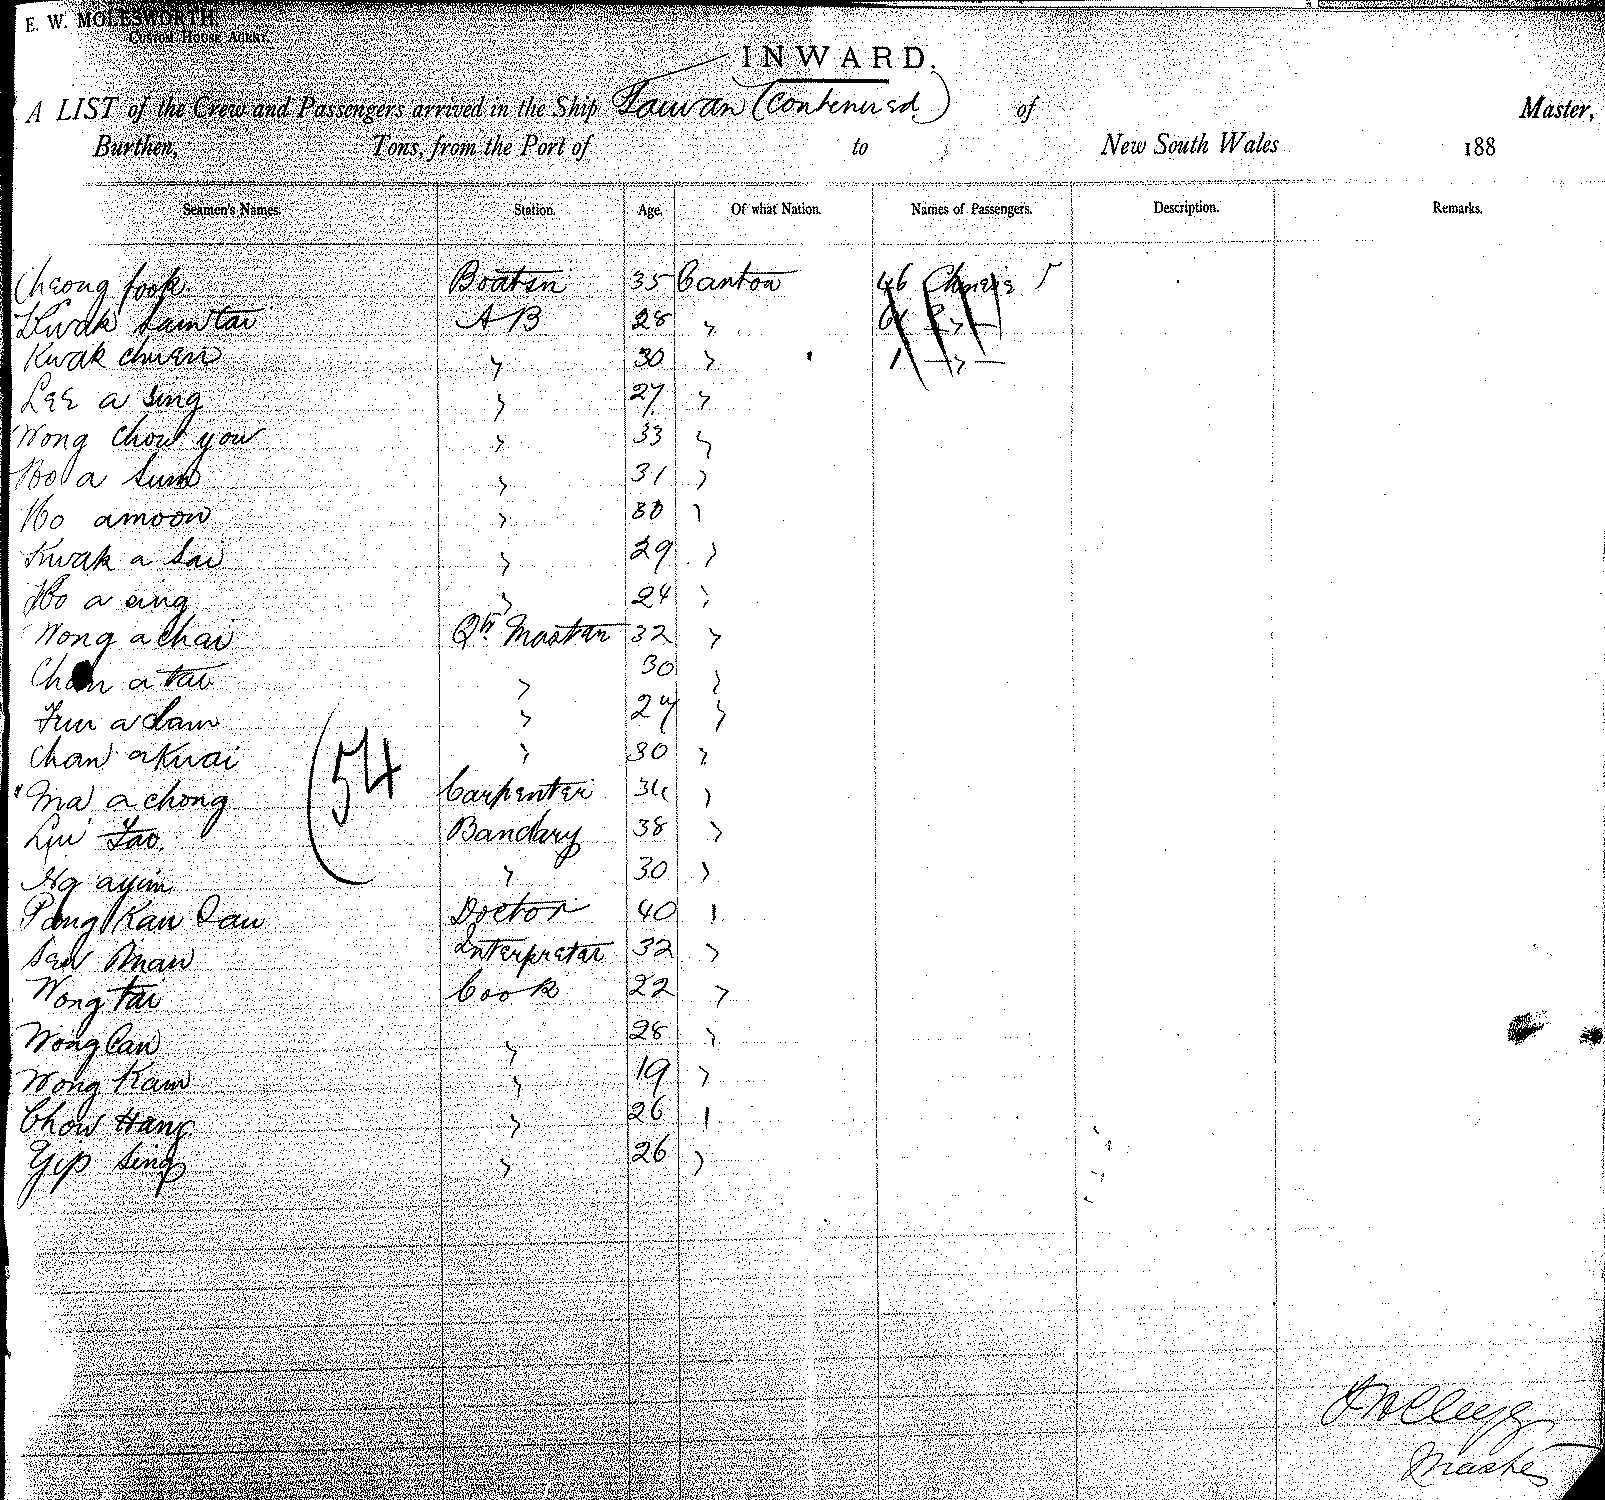 E. W. MOLESWORTH,
CUSTOM HOUSE AGENT.
INWARD.
A LIST of the Crew and Passengers arrived in the Ship Taiwan (Contenused) of Master,
Burthen, Tons, from the Port of to New South Wales 188
Seamen's Names. Station. Age. Of what Nation. Names of Passengers. Description. Remarks.
Cheong fook Boatsn 35 Canton 46 Chinese
Kwak Sam tai A B 28 "
Kwak chuen " 30 "
Lee a Sing " 27 "
Wong Chow you " 33 "
Ho a Sum " 31 "
Ho amoow " "
Kwak a Sai " 29 "
Ho a sing " 24 "
Wong a chai Qtr Master 32 "
Chan a tai " 30 "
a Lam " "
Chan a Kwai " 30 "
Ma a chong Carpenter "
(54
Tao. Bandary 38 "
Ng ayim " 30 "
Pong Kan Doctor 40 "
Man Interpreter 32 "
Wong tai Cook 22 "
Wong Can " 28 "
Wong Kam " 19 "
Chow Hang " 26 "
Yip Sing " 26 "
Master